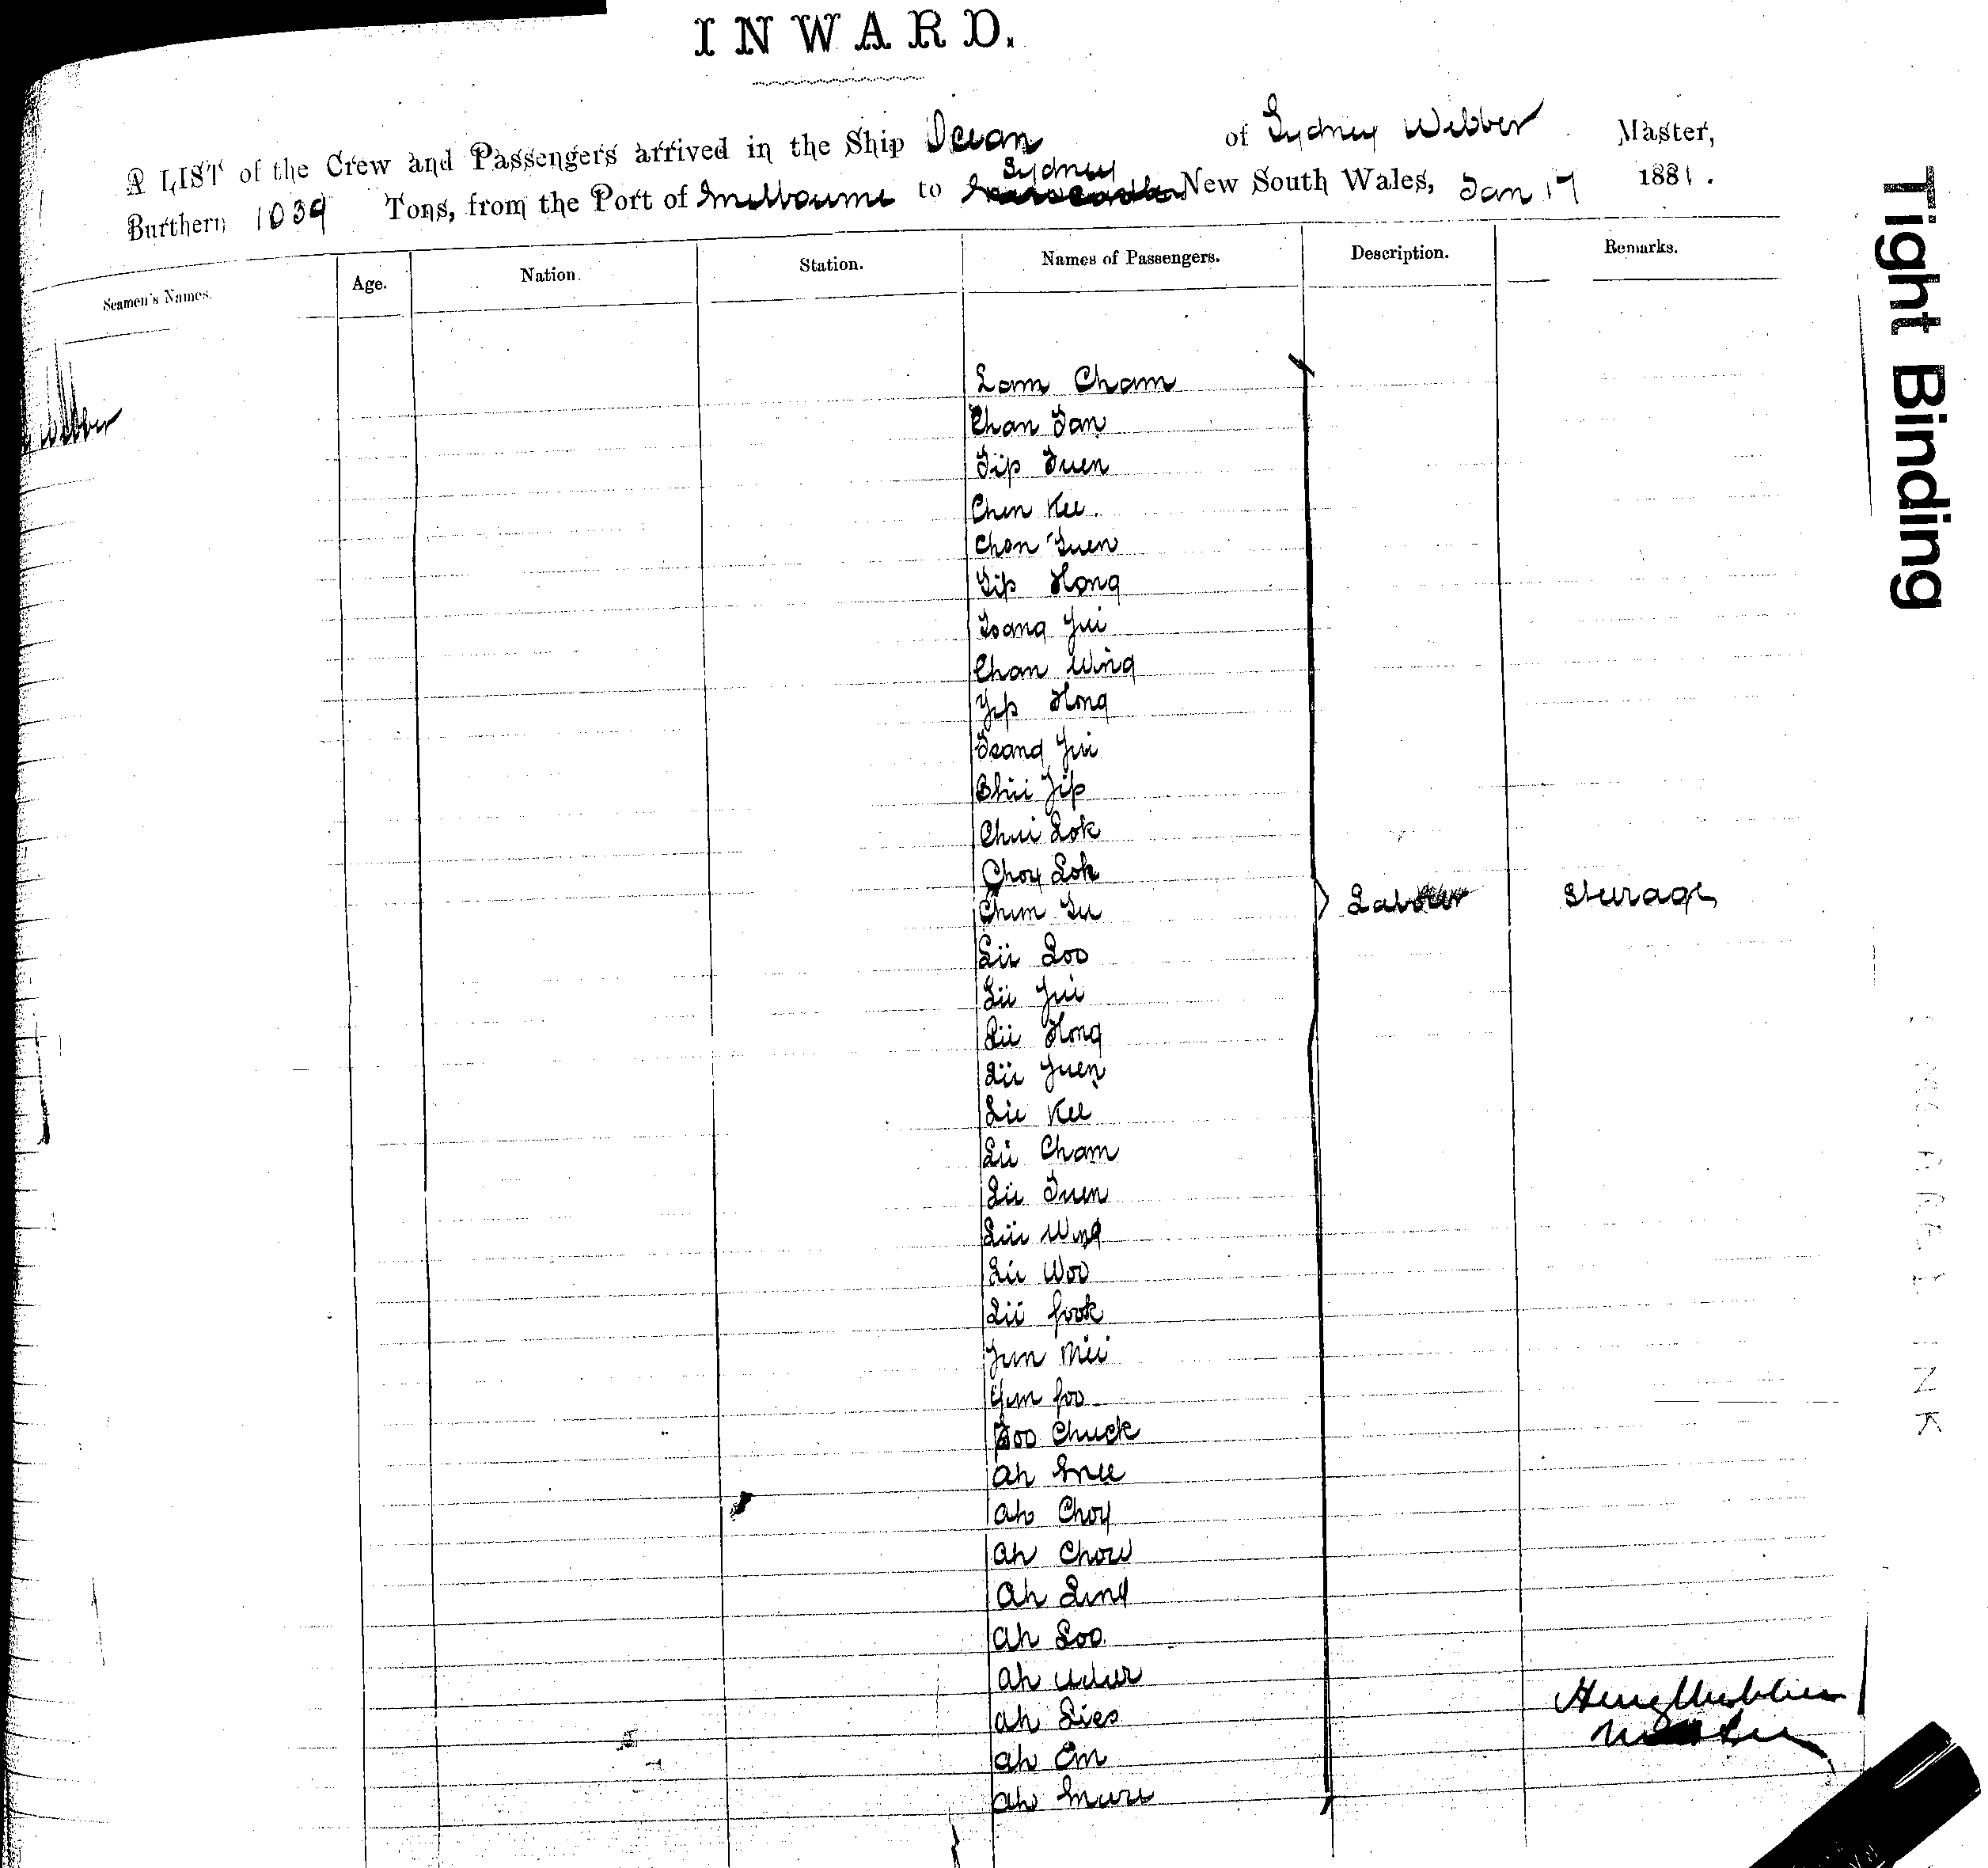 INWARD.
A LIST of the Crew and Passengers arrived in the Ship Ocean of Sydney Webber Master,
Sydney
Burthern 1039 Tons, from the Port of Melbourne to New South Wales, Jan 17 1881.
Seamen's Names. Age. Nation. Station. Names of Passengers. Description. Remarks.
Lam Cham
Webber
Chan Tan
Tip Tuen
Chen Kee.
Chan Tuen
Yip Hong
Tsang Yui
Chan Wing
Yip Hong
Tsang Yui
Chui Yip
Chui Lok
Choy Lok
Chum Labour Steerage
Lii Loo
Lii Yui
Lii Hong
Lii Yuen
Lii Kee
Lii Cham
Lii Tuen
Lii Wing
Lii Woo
Lii fook
Yun Mii
Yun foo
Chuck
Ah
Ah Choy
Ah Chow
Ah Ling
Ah Loo
Ah
Ah Lies
Ah Em
Ah
Tight Binding